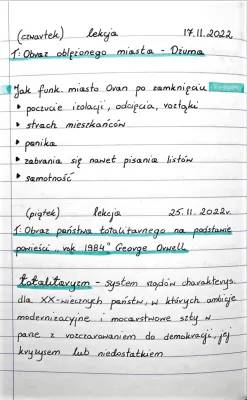 (czwartek) lekcja 17.11.2022
T: Obraz oblężonego miasta - Dżuma
Jak funk. miasto Oran po zamknięciu
• poczucie izolacji, odcięcia, rozłąki
• strach mieszkańców
• panika
• zabrania się nawet pisania listów
• samotność
(piątek) lekcja 25.11.2022r.
T: Obraz państwa totalitarnego na podstawie
powieści „rok 1984" George Orwell
totalitaryzm - system rządów charakterys.
dla XX-wiecznych państw, w których ambicje
modernizacyjne i mocarstwowe szły w
parze z rozczarowaniem do demokracji, jej
kryzysem lub niedostatkiem